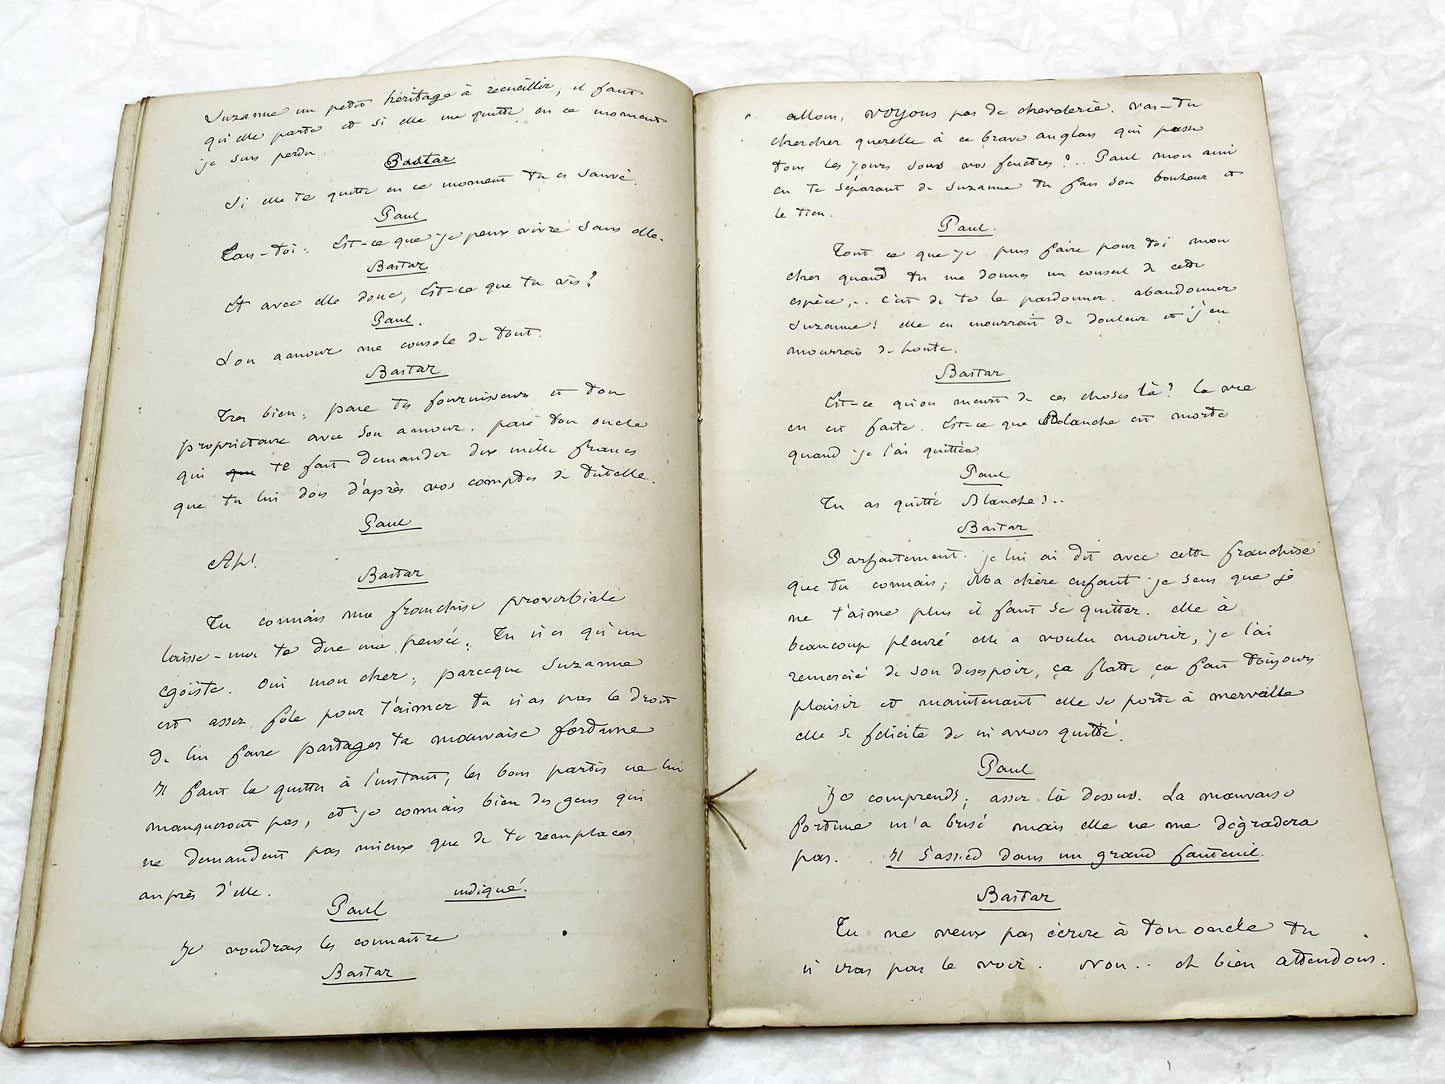 Suzanne un petit héritage à recueillir, il faut
qu'elle parte et si elle me quitte en ce moment
je suis perdu
Bastar
Si elle te quitte en ce moment tu es sauvé.
Paul
Tais-toi. Est-ce que je peux vivre sans elle.
Bastar
Et avec elle donc, Est-ce que tu vis?
Paul.
Son amour me console de tout.
Bastar
Tres bien, paie tes fournisseurs et ton
proprietaire avec son amour. paie ton oncle
qui que te fait demander dix mille francs
que tu lui dois d'après vos comptes de tutelle.
Paul
Ah!
Bastar
Tu connais ma franchise proverbiale
laisse-moi te dire ma pensée. Tu n'es qu'un
égoïste. Oui mon cher, parceque Suzanne
est assez folle pour t'aimer tu n'as pas le droit
de lui faire partager ta mauvaise fortune
Il faut la quitter à l'instant, les bons partis ne lui
manqueront pas, et je connais bien des gens qui
ne demandent pas mieux que de te remplacer
auprès d'elle.
Paul indiqué.
Je voudrais les connaitre
Bastar
allons, voyons pas de chevalerie. vas-tu
chercher querelle à ce brave anglais qui passe
tous les jours sous vos fenêtres?.. Paul mon ami
en te séparant de Suzanne tu fais son bonheur et
le tien.
Paul.
Tout ce que je puis faire pour toi mon
cher quand tu me donnes un conseil de cette
espèce,.. c'est de te le pardonner. abandonner
Suzanne! elle en mourrait de douleur et j'en
mourrais de honte.
Bastar
Est-ce qu'on meurt de ces choses là? la vie
en est faite. Est-ce que Blanche est morte
quand je l'ai quittée
Paul
Tu as quitté Blanche?..
Bastar
Parfaitement. je lui ai dit avec cette franchise
que tu connais; Ma chère enfant je sens que je
ne t'aime plus il faut se quitter. elle à
beaucoup pleuré elle a voulu mourir, je l'ai
remercié de son desespoir, ça flatte ça fait toujours
plaisir et maintenant elle se porte à merveille
elle se félicite de m'avoir quitté.
Paul
Je comprends; assez là dessus. La mauvaise
fortune m'a brisé mais elle ne me dégradera
pas. Il s'assied dans un grand fauteuil.
Bastar
Tu ne veux pas écrire à ton oncle tu
n'iras pas le voir. Non.. eh bien attendons.